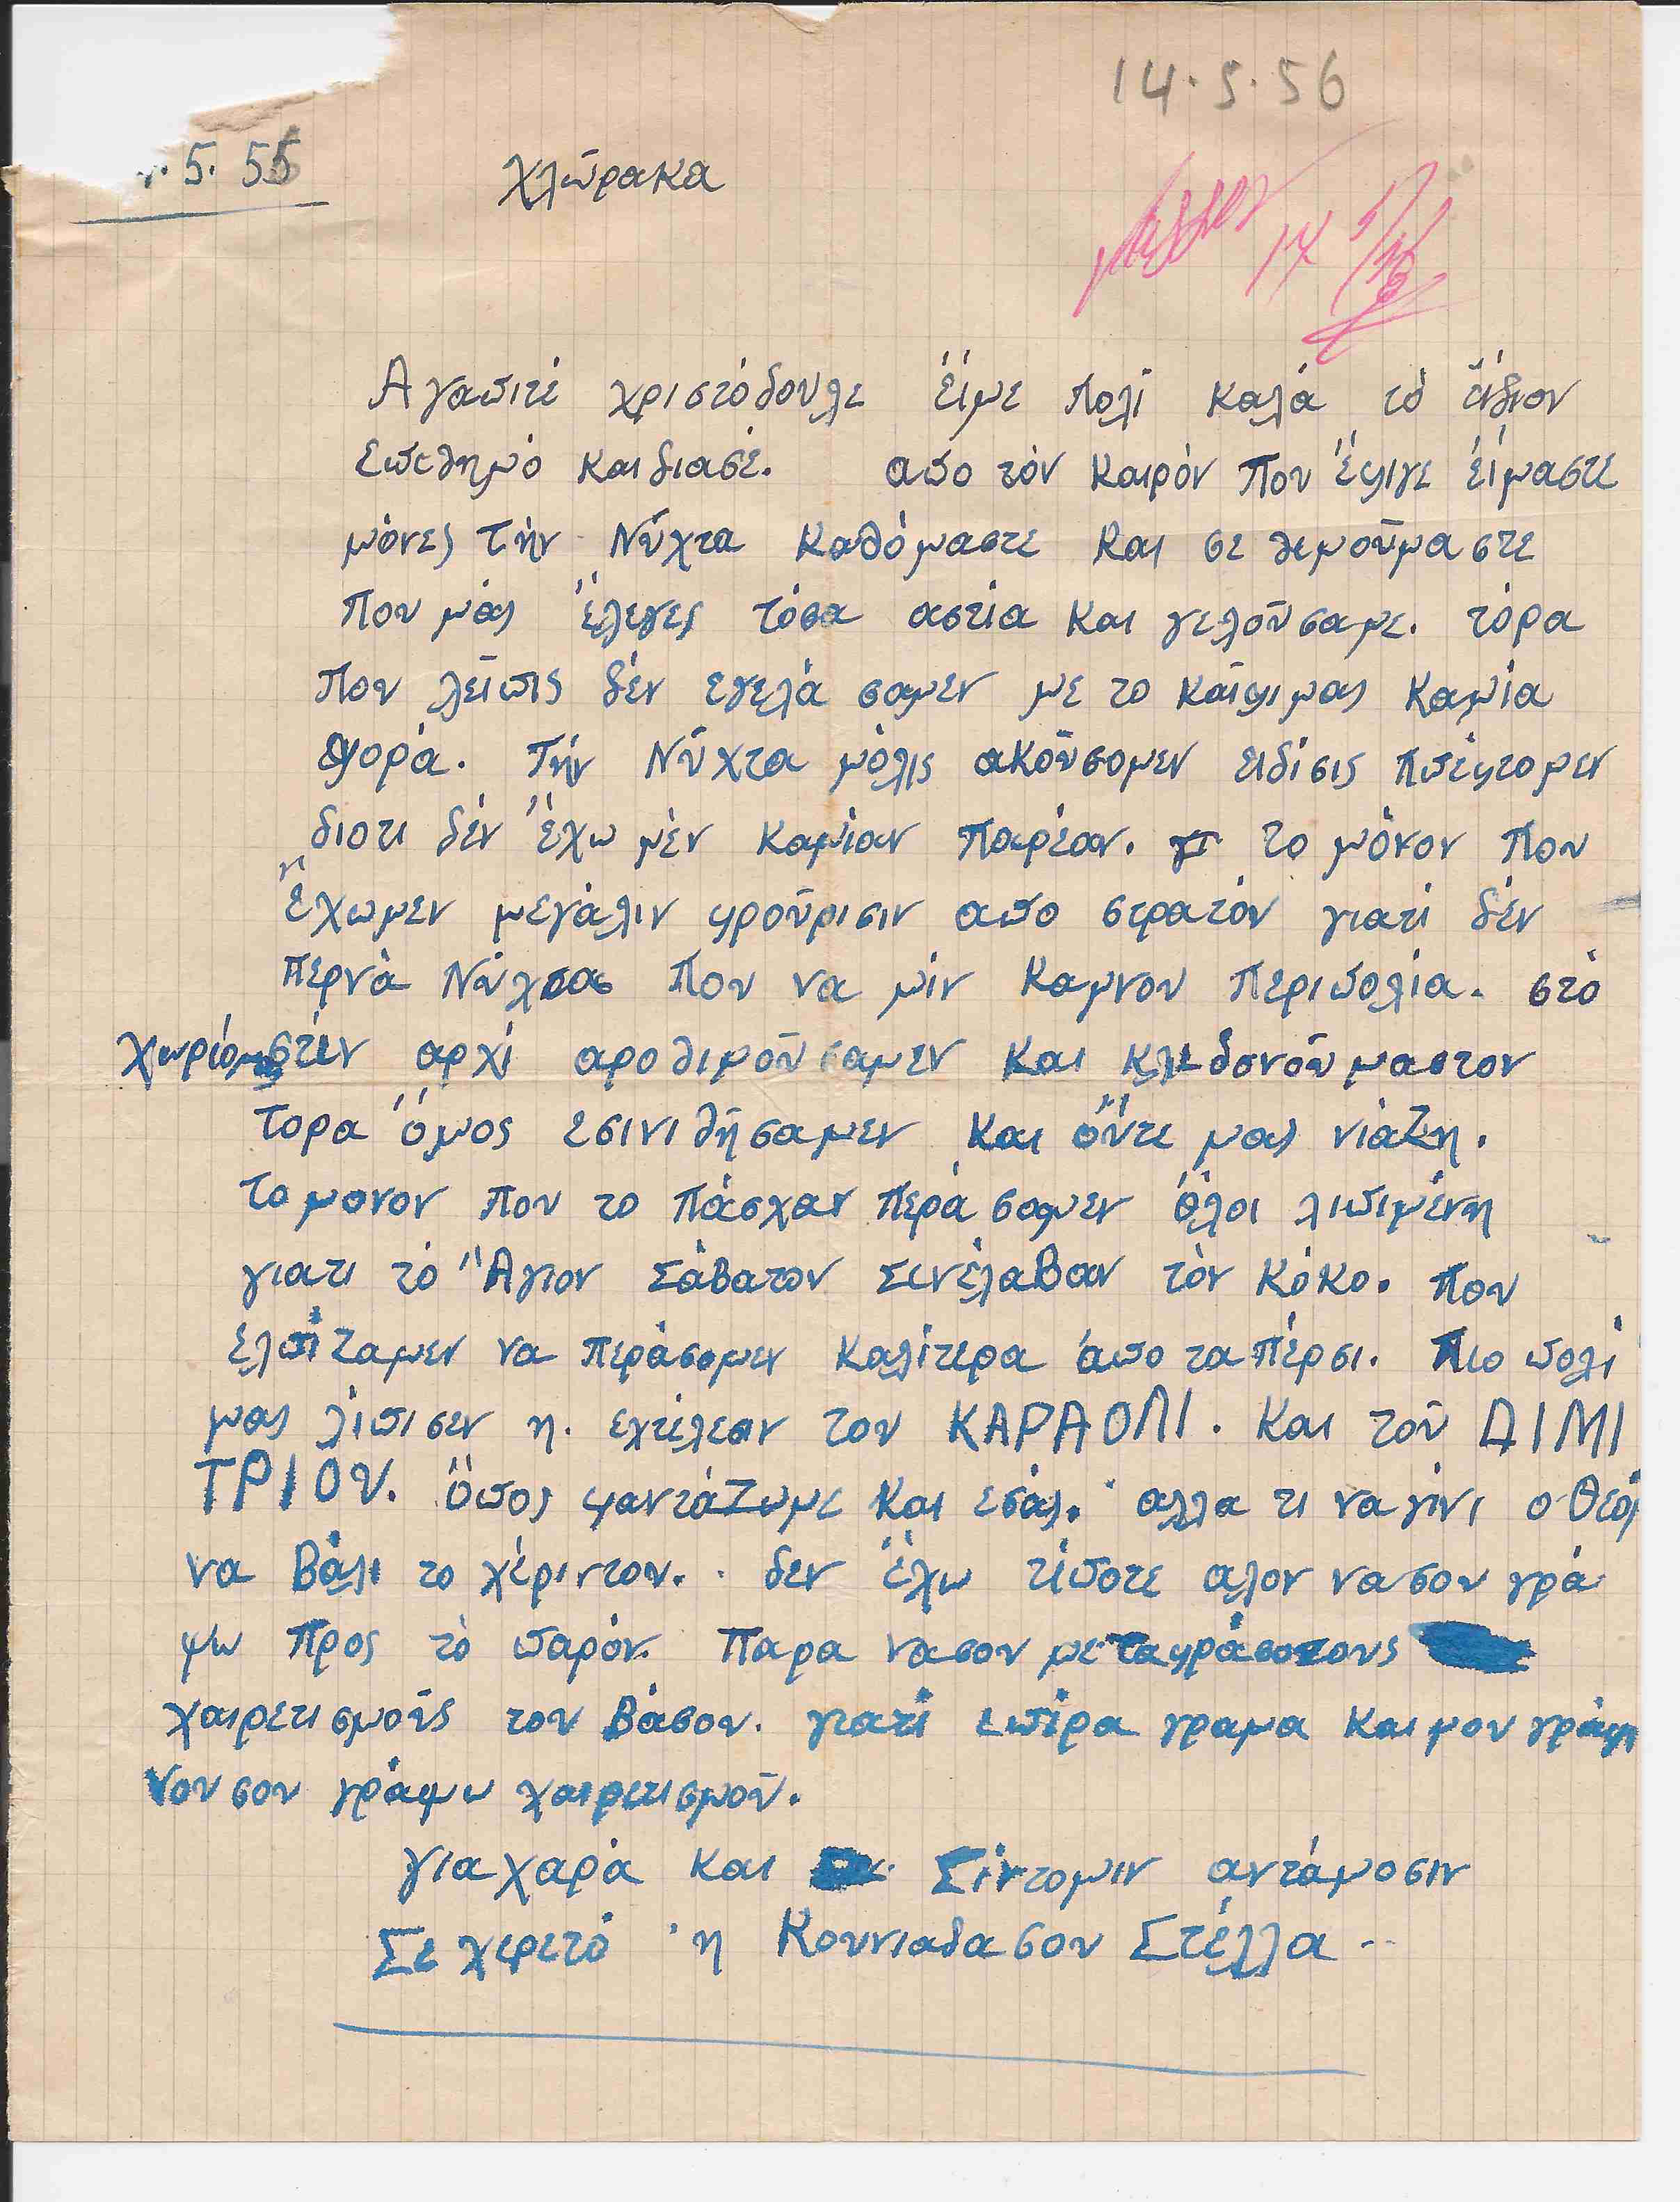 14.5.56
.5.55
Χλώρακα
14 5/56
Αγαπιτέ χριστόδουλε έίμε πολί καλά τό ίιδιον
επεθημό και διασέ. απο τόν καιρόν που έφιγε έίμαστε
μόνες τήν Νύχτα καθόμαστε και σε θιμούμαστε
που μάς έλεγες τόσα αστία και γελούσαμε. τόρα
που λείπις δέν εγελά σαμεν με το καίφιμας καμία
φορά. τήν Νύχτα μόλις ακούσομεν ειδίσις ππέφτομεν
διοτι δέν έχω μέν καμίαν παρέαν. το μόνον που
έχωμεν μεγάλιν φρούρισιν απο στρατόν γιατί δέν
περνά Νύχτα που να μίν καμνουν περιπολία. στό
χωρίόμας στιν αρχί αροθιμούσαμεν και κλιδονούμαστον
τορα όμος εσινιθήσαμεν και ούτε μας νιάζη.
το μονον που το πάσχαν περά σαμεν όλοι λιπιμένη
γιατι τό Άγιον Σάβατον Σινέλαβαν τόν Κόκο. που
έλπίζαμεν να περάσομεν καλίτερα άπο τα πέρσι. πιο πολί
μας λίπισεν η. εχτέλεσιν του ΚΑΡΑΟΛΙ. και τού ΔΙΜΙ
ΤΡΙΟΥ. όπος φαντάζωμε και εσάς. αλλα τι να γίνι ο Θεός
να βάλι το χέριντου. δεν έχω τίποτε αλον να σου γρά
ψω προς τό παρόν. παρα να σου μεταφράσο τους
χαιρετισμούς του Βάσου. γιατί επίρα γραμα και μου γράφι
νου σου γράψω χαιρετισμού.
για χαρά και Σίντομιν αντάμοσιν
Σε χερετό η Κουνιαδα σου Στέλλα